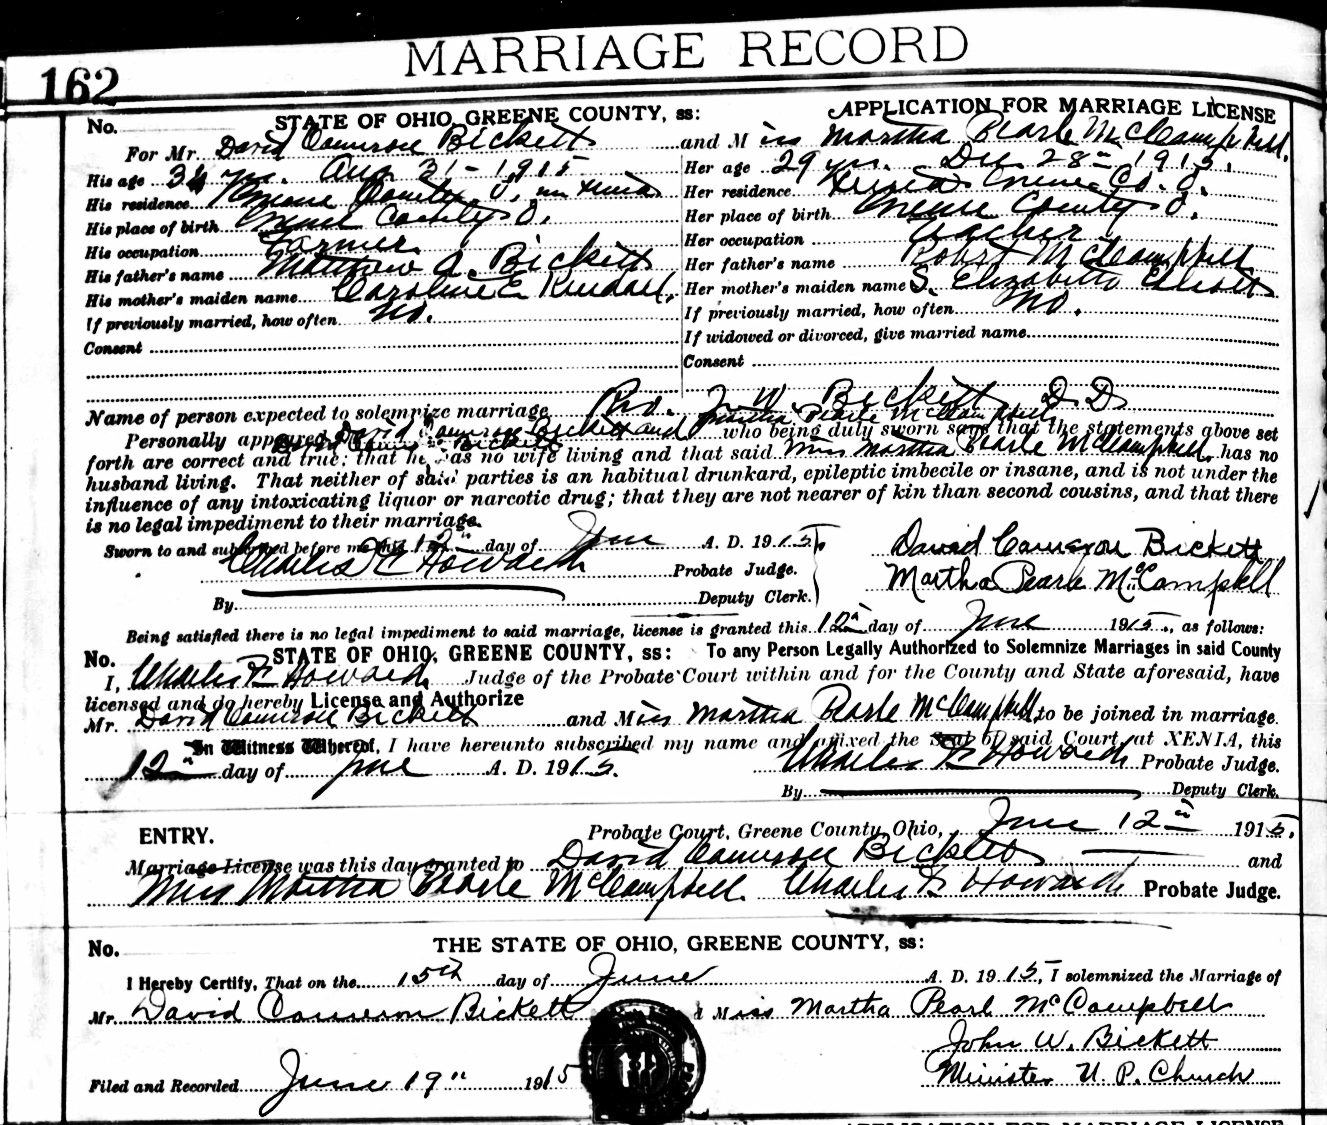 MARRIAGE RECORD
162
No. STATE OF OHIO, GREENE COUNTY, ss: APPLICATION FOR MARRIAGE LICENSE
For Mr. David Cameron Bickett and Miss Martha Pearle McCampbell.
His age yrs. Aug 31 - 1915 Her age 29 yrs. Dec 28 - 1915.
His residence Greene County O, Xenia Her residence Xenia Greene Co. O.
His place of birth Greene County O. Her place of birth Greene County O.
His occupation Farmer Her occupation Teacher
His father's name Matthew A. Bickett Her father's name Robert McCampbell
His mother's maiden name Caroline E Kendall, Her mother's maiden name S. Elizabeth
If previously married, how often no. If previously married, how often no.
Consent If widowed or divorced, give married name
Consent
Name of person expected to solemnize marriage J. W. Bickett D D
Personally appeared David Cameron Bickett and Martha Pearle McCampbell who being duly sworn says that the statements above set
forth are correct and true; that he has no wife living and that said Miss Martha Pearle McCampbell has no
husband living. That neither of said parties is an habitual drunkard, epileptic imbecile or insane, and is not under the
influence of any intoxicating liquor or narcotic drug; that they are not nearer of kin than second cousins, and that there
is no legal impediment to their marriage.
Sworn to and subscribed before me this 12th day of June A. D. 1915. David Cameron Bickett
Charles F. Howard Probate Judge. Martha Pearle McCampbell
By Deputy Clerk.
Being satisfied there is no legal impediment to said marriage, license is granted this 12th day of June 1915., as follows:
No. STATE OF OHIO, GREENE COUNTY, ss: To any Person Legally Authorized to Solemnize Marriages in said County
I, Charles F. Howard, Judge of the Probate Court within and for the County and State aforesaid, have
licensed and do hereby License and Authorize
Mr. David Cameron Bickett and Miss Martha Pearle McCampbell to be joined in marriage.
In Witness Whereof, I have hereunto subscribed my name and affixed the Seal of said Court, at XENIA, this
12th day of June A. D. 1915. Charles F. Howard Probate Judge.
By Deputy Clerk.
ENTRY. Probate Court, Greene County, Ohio, June 12th 1915.
Marriage License was this day granted to David Cameron Bickett and
Miss Martha Pearle McCampbell. Charles F. Howard Probate Judge.
No. THE STATE OF OHIO, GREENE COUNTY, ss:
I Hereby Certify, That on the 15th day of June A. D. 1915, I solemnized the Marriage of
Mr. David Cameron Bickett d Miss Martha Pearl McCampbell
John W. Bickett
Filed and Recorded June 19" 1915 Minister U. P. Church
APPLICATION FOR MARRIAGE LICENSE